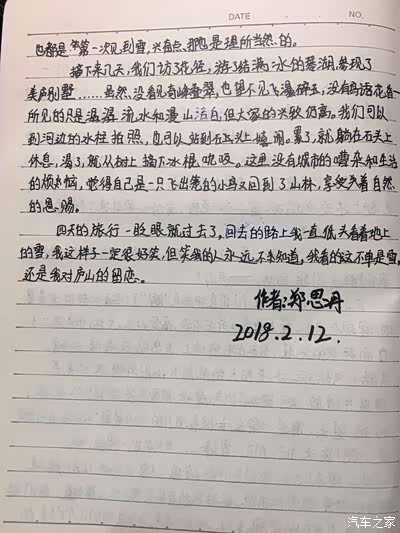 DATE NO.
也都是第一次见到雪,兴奋点、那也是理所当然的。
接下来几天,我们访了花径,游了结满冰的琴湖,参观了
美庐别墅……虽然,没看见春峰叠翠,也望不见飞瀑碎玉,没有鸟语花香
所见的只是潺潺流水和漫山洁白,但大家的兴致仍高。我们可以
到河边的冰柱拍照,也可以站到石头上嬉闹。累了,就躺在石头上
休息,渴了,就从树上摘下冰棍吮吸。这里没有城市的嘈杂和生活
的烦恼,觉得自己是一只飞出笼的小鸟又回到了山林,享受着自然
的恩赐。
四天的旅行一眨眼就过去了,回去的路上我一直低头看着地上
的雪,我这样子一定很好笑,但笑我的人永远不知道,我看的这不单是雪,
还是我对庐山的留恋。
作者:郑思丹
2018.2.12.
汽车之家